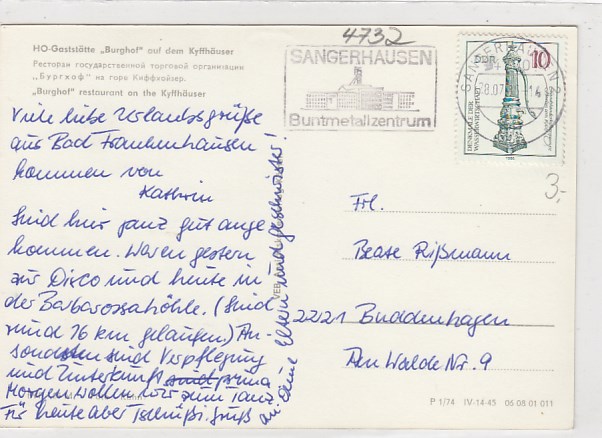 4732
HO-Gaststätte „Burghof" auf dem Kyffhäuser
Ресторан государственной торговой организации
„Бургхоф" на горе Киффхойзер.
„Burghof" restaurant on the Kyffhäuser
SANGERHAUSEN
Buntmetallzentrum
SANGERHAUSEN 2
DDR 10
DENKMALE DER WASSERWIRTSCHAFT
3,-
Viele liebe Urlaubsgrüße
aus Bad Frankenhausen
kommen von
Kathrin
Sind hier ganz gut ange-
kommen. Waren gestern
zur Disco und heute in
der Barbarossahöhle. (Sind
rund 16 km gelaufen.) An-
sonsten sind Verpflegung
und Unterkunft prima
Morgen wollen wir zum Tanz.
Für heute aber Tschüß. Gruß
an Deine Eltern und Geschwister
VEB
Frl.
Beate Rißmann
2221 Buddenhagen
Am Walde Nr. 9
P 1/74 IV-14-45 06 08 01 011